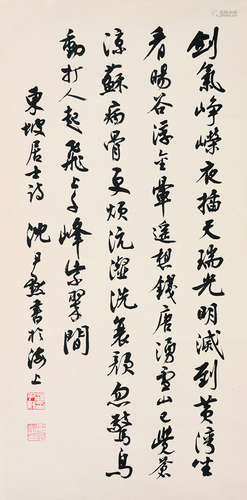 劍氣崢嶸夜插天瑞光明滅到黃灣坐
看暘谷浮金暈遥想錢唐湧雪山已覺蒼
涼蘇病骨更煩沆瀣洗衰顏忽驚鳥
動行人起飛上千峰紫翠間
東坡居士詩 沈尹默書於海上